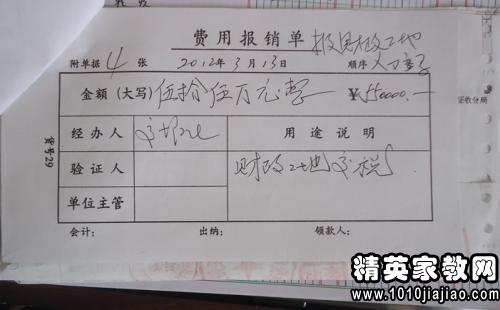 费用报销单 报财政工地
附单据 4 张 2012年3月13日 顺序
金额(大写) 伍拾伍万元整 ¥550000.—
证收分局
经办人 用途说明
验证人 财政工地 税
单位主管
货号29
会计: 出纳: 领款人:
精英家教网
www.1010jiajiao.com